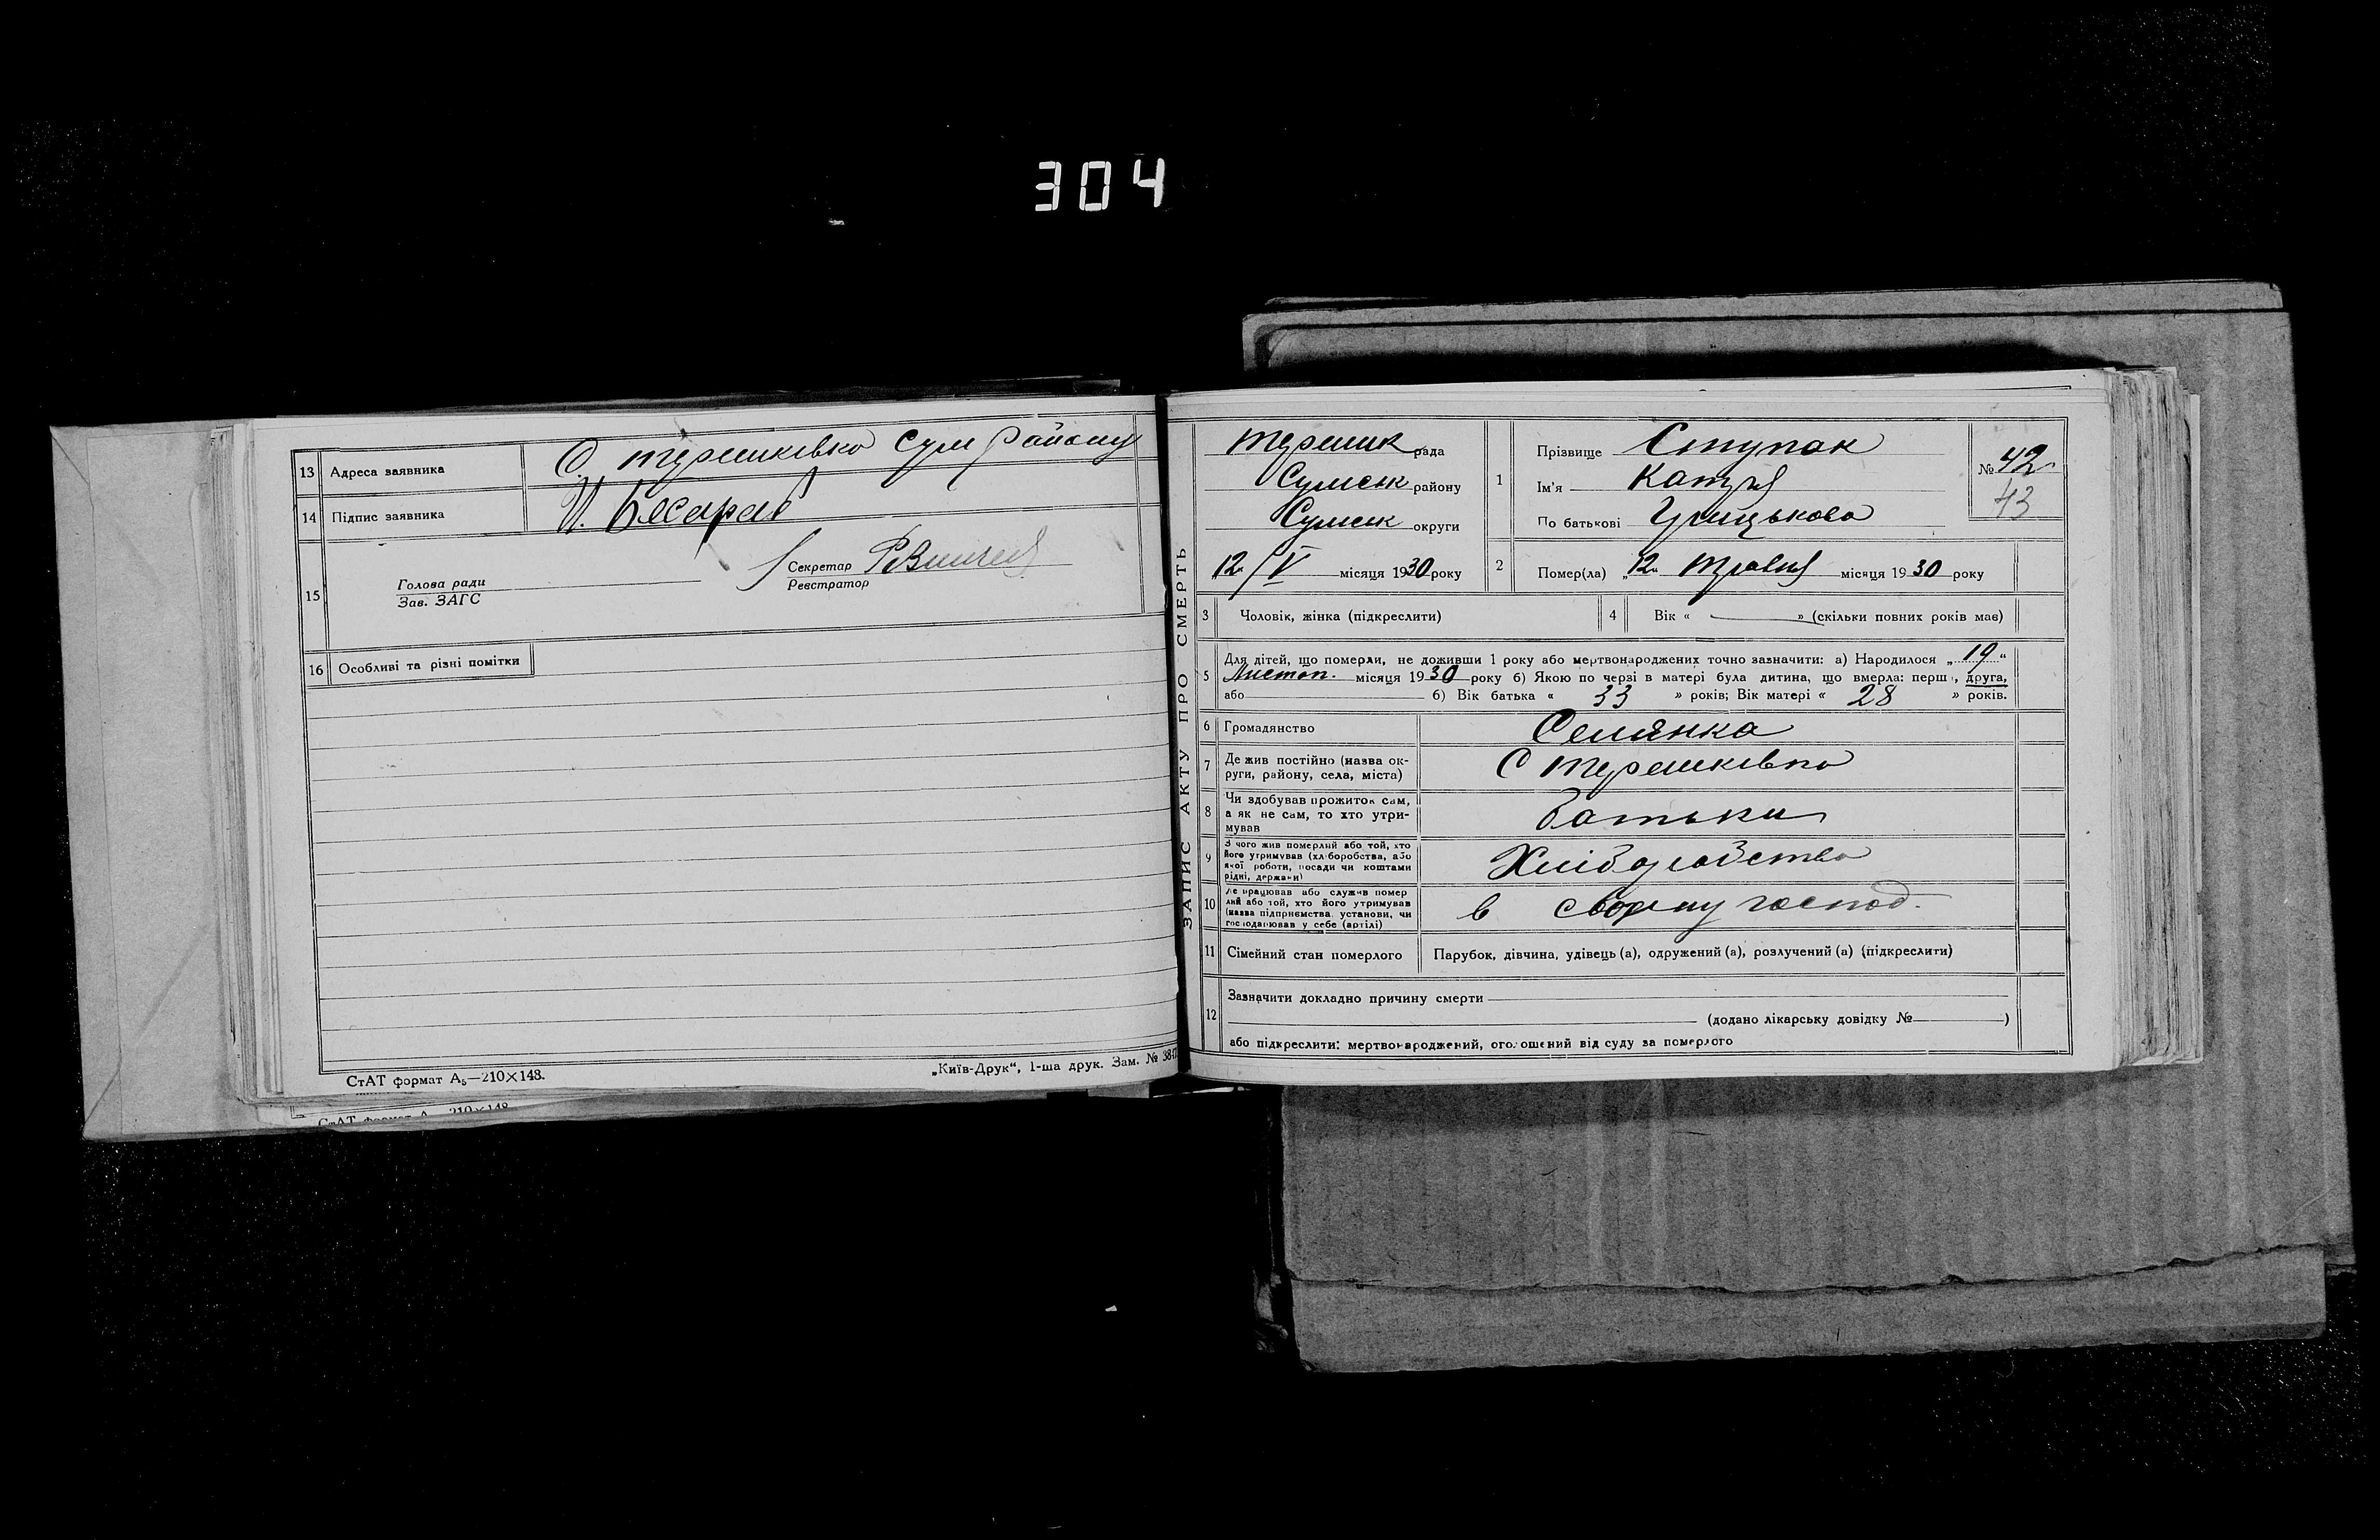 304
13 Адреса заявника С. терешківка Сум району
14 Підпис заявника
15 Голова ради
Зав. ЗАГС
Секретар
Реєстратор
16 Особливі та різні помітки
СтАТ формат А₅—210×148.
„Київ-Друк“, 1-ша друк. Зам. № 38
ЗАПИС АКТУ ПРО СМЕРТЬ
терешк рада
Сумськ району
Сумськ округи
12/V місяця 1930 року
1 Прізвище Ступак
Ім'я Катря
По батькові Грицькова
№ 42
43
2 Помер(ла) „12“ травня місяця 1930 року
3 Чоловік, жінка (підкреслити)
4 Вік « » (скільки повних років має)
5 Для дітей, що померли, не доживши 1 року або мертвонароджених точно зазначити: а) Народилося „19“
Листоп. місяця 1930 року б) Якою по черзі в матері була дитина, що вмерла: перш , друга,
або б) Вік батька « 33 » років; Вік матері « 28 » років.
6 Громадянство Селянка
7 Де жив постійно (назва ок-
руги, району, села, міста) С терешківка
8 Чи здобував прожиток сам,
а як не сам, то хто утри-
мував батьки
9 З чого жив померлий або той, хто
його утримував (хліборобства, або
якої роботи, посади чи коштами
рідні, держави) Хліборобство
10 Де працював або служив помер
лий або той, хто його утримував
(назва підприємства, установи, чи
господарював у себе (артілі) в своєму господ.
11 Сімейний стан померлого Парубок, дівчина, удівець (а), одружений (а), розлучений (а) (підкреслити)
12 Зазначити докладно причину смерти
(додано лікарську довідку № )
або підкреслити: мертвонароджений, оголошений від суду за померлого